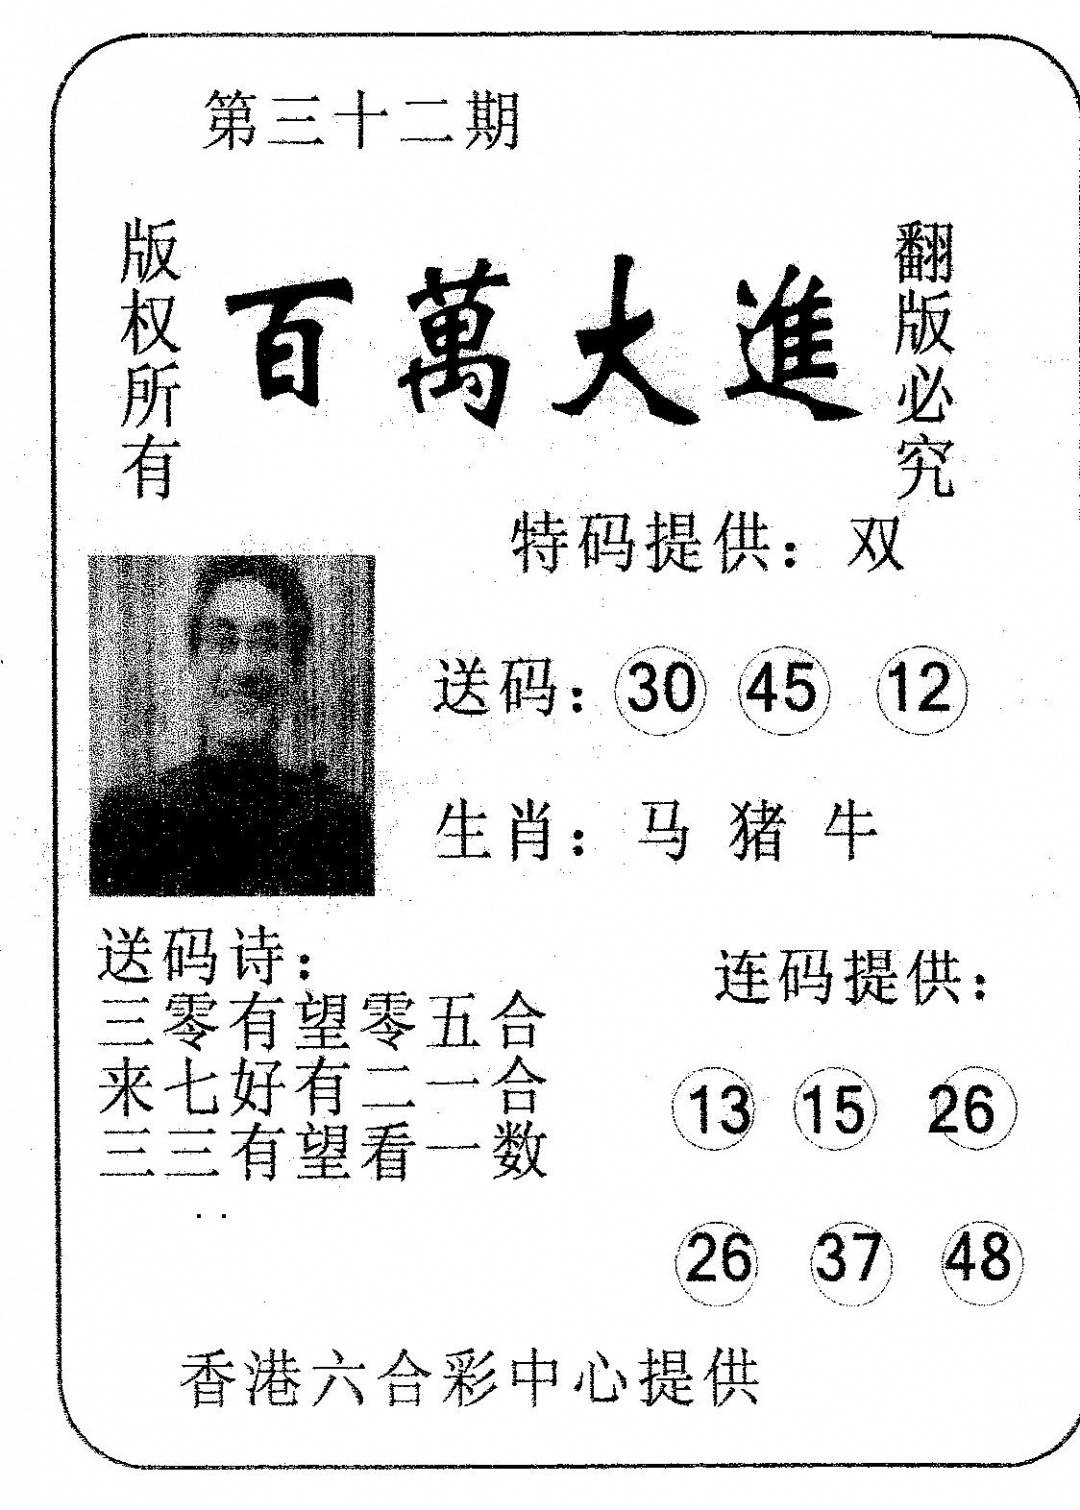 第三十二期
版权所有
百萬大進
翻版必究
特码提供：双
送码：30 45 12
生肖：马 猪 牛
送码诗：
三零有望零五合
来七好有二一合
三三有望看一数
连码提供：
13 15 26
26 37 48
香港六合彩中心提供